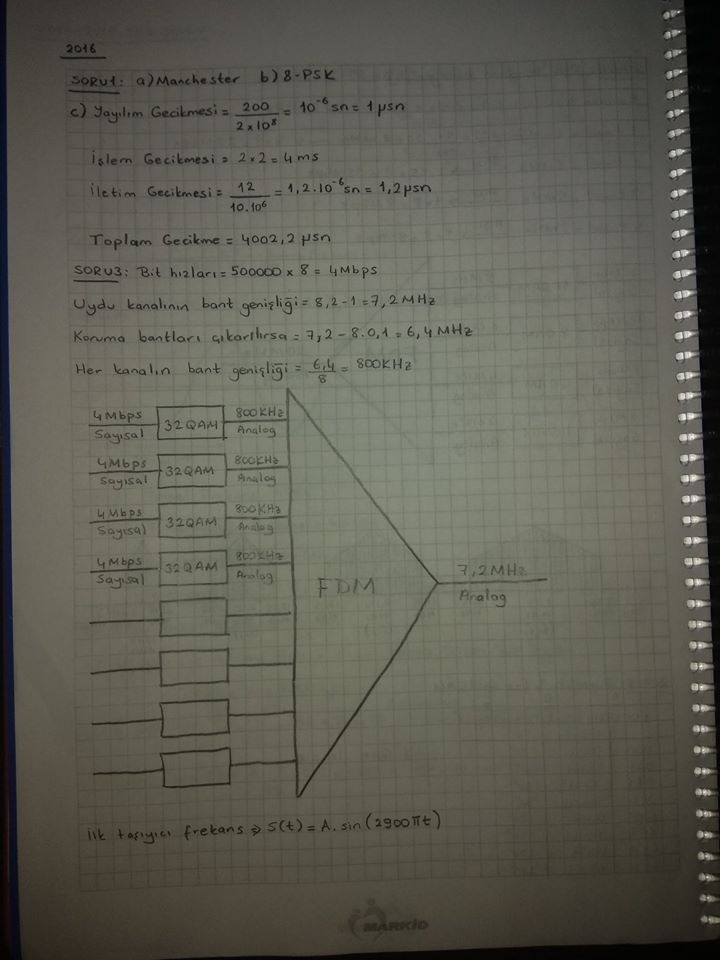 2016
SORU1: a) Manchester b) 8-PSK
c) Yayılım Gecikmesi = 200 / 2x10⁸ = 10⁻⁶ sn = 1 µsn
İşlem Gecikmesi = 2x2 = 4 ms
İletim Gecikmesi = 12 / 10.10⁶ = 1,2.10⁻⁶ sn = 1,2 µsn
Toplam Gecikme = 4002,2 µsn
SORU3: Bit hızları = 500000 x 8 = 4Mbps
Uydu kanalının bant genişliği = 8,2-1 = 7,2 MHz
Koruma bantları çıkarılırsa = 7,2 - 8.0,1 = 6,4 MHz
Her kanalın bant genişliği = 6,4 / 8 = 800KHz
4Mbps Sayısal 32QAM 800KHz Analog
4Mbps Sayısal 32QAM 800KHz Analog
4Mbps Sayısal 32QAM 800KHz Analog
4Mbps Sayısal 32QAM 800KHz Analog
FDM
7,2MHz Analog
ilk taşıyıcı frekans => S(t) = A.sin(2900πt)
MARKİD